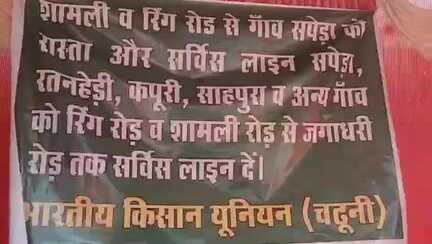 शामली व रिंग रोड से गाँव सपेड़ा को
रास्ता और सर्विस लाइन सपेड़ा,
रतनहेड़ी, कपूरी, साहपुरा व अन्य गाँव
को रिंग रोड़ व शामली रोड़ से जगाधरी
रोड़ तक सर्विस लाइन दें।
भारतीय किसान यूनियन (चढूनी)